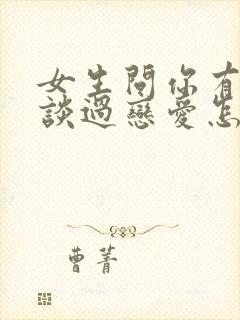 女生問你有
談過戀愛怎
曹菁